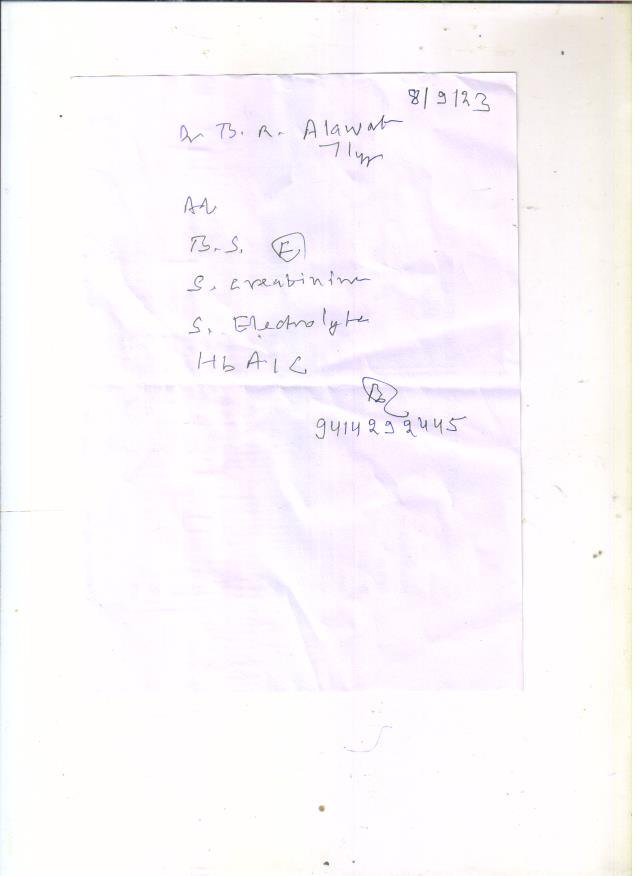 8/9/23
Dr B. R. Alawat
71yr
Ad
B.S. (F)
S. creatinine
S. Electrolyte
HbA1C
9414292445